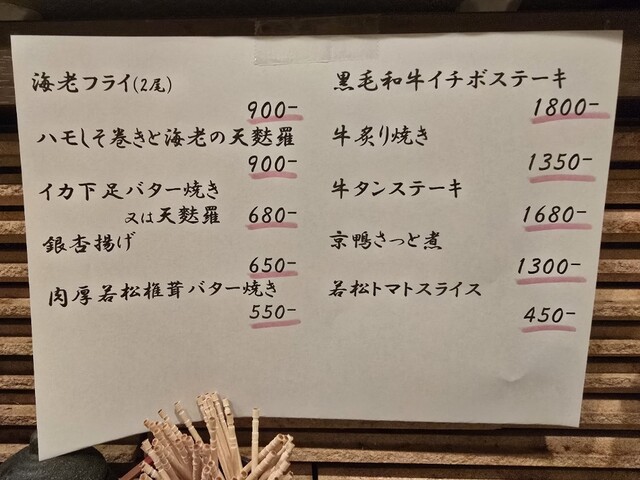 海老フライ(2尾)
900-
ハモしそ巻きと海老の天麩羅
900-
イカ下足バター焼き
又は天麩羅 680-
銀杏揚げ
650-
肉厚若松椎茸バター焼き
550-
黒毛和牛イチボステーキ
1800-
牛炙り焼き
1350-
牛タンステーキ
1680-
京鴨さっと煮
1300-
若松トマトスライス
450-